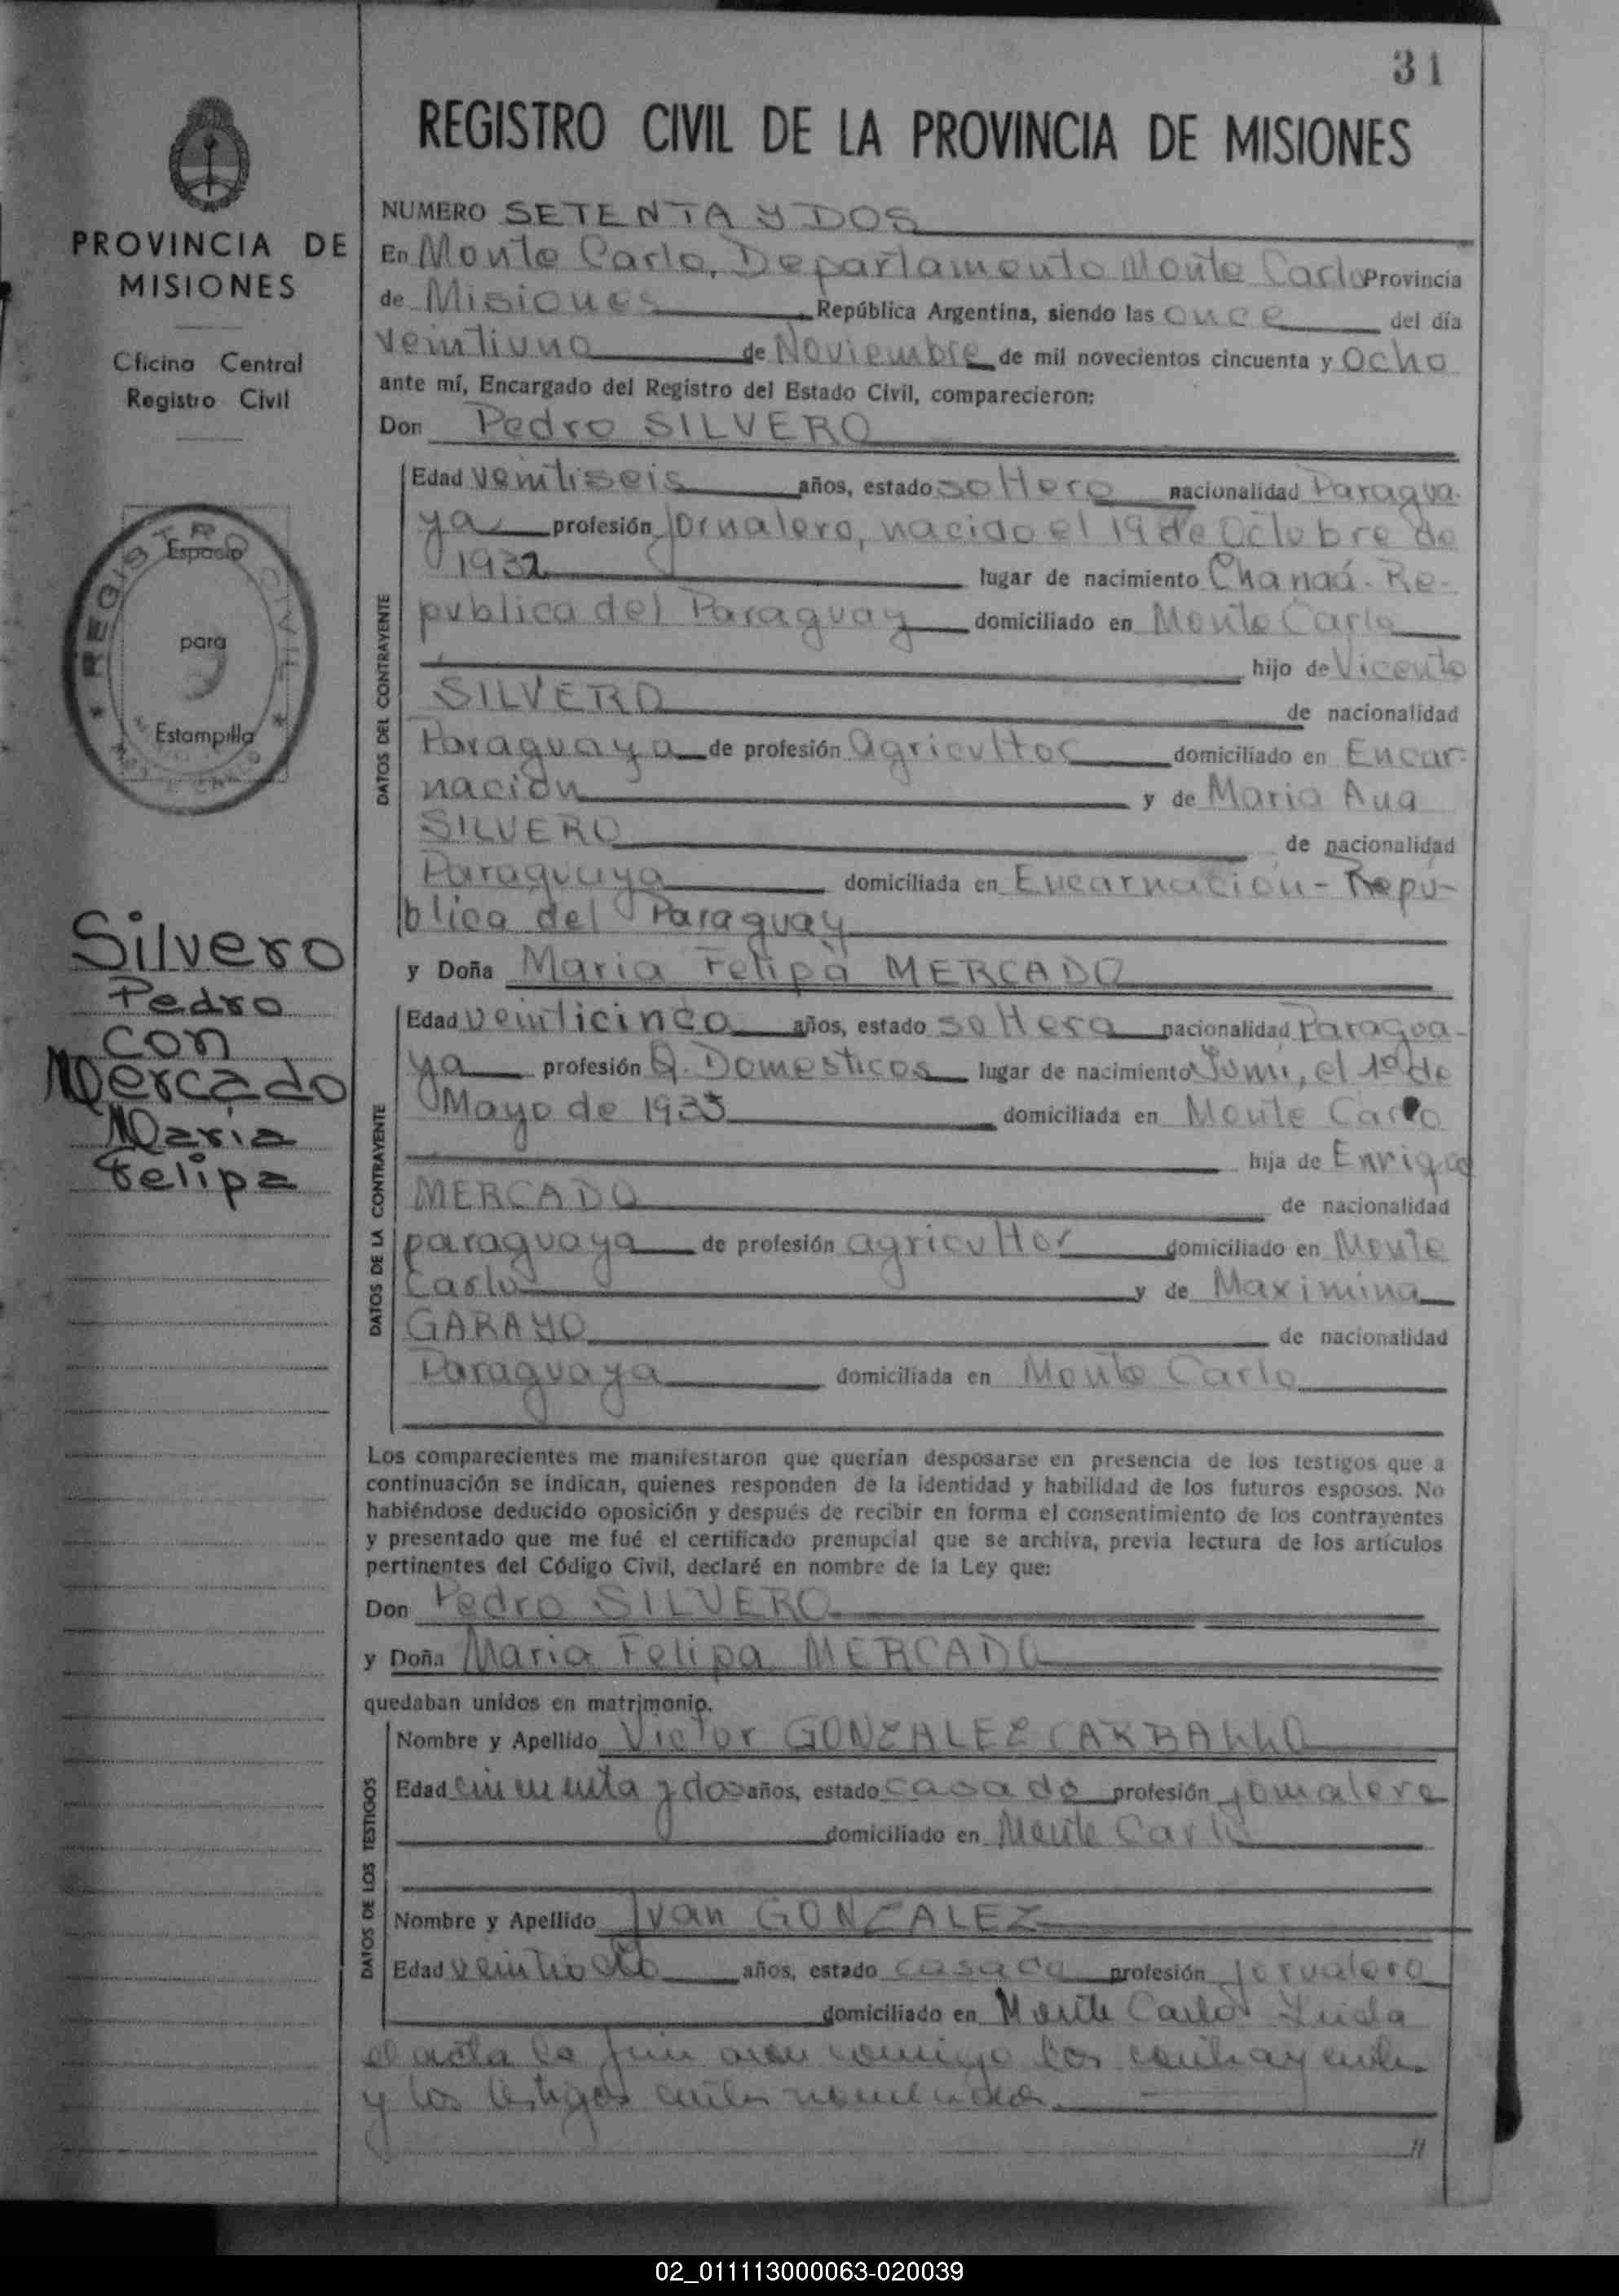 31
REGISTRO CIVIL DE LA PROVINCIA DE MISIONES
PROVINCIA DE
MISIONES
Oficina Central
Registro Civil
REGISTRO CIVIL
Espacio
para
Estampilla
Silvero
Pedro
con
Mercado
Maria
Felipa
NUMERO SETENTA Y DOS
En Monte Carlo, Departamento Monte Carlo Provincia
de Misiones República Argentina, siendo las once del día
veintiuno de Noviembre de mil novecientos cincuenta y ocho
ante mí, Encargado del Registro del Estado Civil, comparecieron:
Don Pedro SILVERO
DATOS DEL CONTRAYENTE
Edad veintiseis años, estado soltero nacionalidad Paragua-
ya profesión jornalero, nacido el 19 de Octubre de
1932 lugar de nacimiento Re-
publica del Paraguay domiciliado en Monte Carlo
hijo de Vicente
SILVERO de nacionalidad
Paraguaya de profesión agricultor domiciliado en Encar-
nación y de Maria Ana
SILVERO de nacionalidad
Paraguaya domiciliada en Encarnación - Repu-
blica del Paraguay
y Doña Maria Felipa MERCADO
DATOS DE LA CONTRAYENTE
Edad veinticinco años, estado soltera nacionalidad Paragua-
ya profesión Q. Domesticos lugar de nacimiento el 1º de
Mayo de 1933 domiciliada en Monte Carlo
hija de Enrique
MERCADO de nacionalidad
paraguaya de profesión agricultor domiciliado en Monte
Carlo y de Maximina
GARAYO de nacionalidad
Paraguaya domiciliada en Monte Carlo
Los comparecientes me manifestaron que querían desposarse en presencia de los testigos que a
continuación se indican, quienes responden de la identidad y habilidad de los futuros esposos. No
habiéndose deducido oposición y después de recibir en forma el consentimiento de los contrayentes
y presentado que me fué el certificado prenupcial que se archiva, previa lectura de los artículos
pertinentes del Código Civil, declaré en nombre de la Ley que:
Don Pedro SILVERO
y Doña Maria Felipa MERCADO
quedaban unidos en matrimonio.
DATOS DE LOS TESTIGOS
Nombre y Apellido Victor GONZALEZ CARBALLO
Edad cincuenta y dos años, estado casado profesión jornalero
domiciliado en Monte Carlo
Nombre y Apellido Ivan GONZALEZ
Edad veintiocho años, estado casado profesión jornalero
domiciliado en Monte Carlo Leida
el acta la firmaron conmigo los contrayentes
y los testigos antes nombrados.
//
02_011113000063-020039